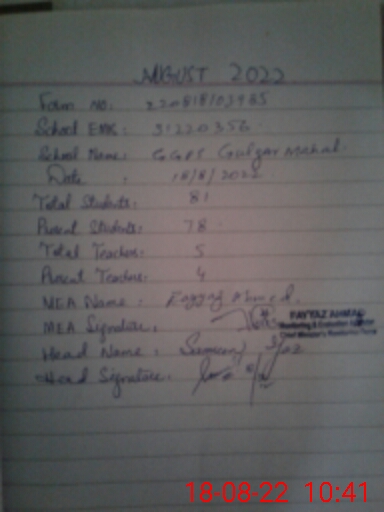 AUGUST 2022
Form No: 220818103985
School EMIS: 31220356
School Name: GGPS Gulzar Mahal
Date : 18/8/2022
Total Students: 81
Present Students: 78
Total Teachers: 5
Present Teachers: 4
MEA Name : Fayyaz Ahmed
MEA Signature:
FAYYAZ AHMAD
Monitoring & Evaluation
Head Name :
Head Signature:
18-08-22 10:41